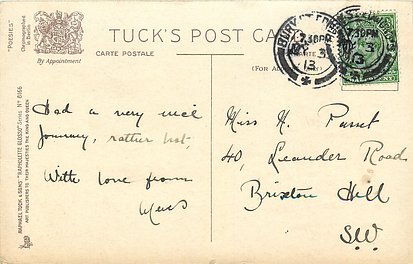 "POESIES"
Chromographed
in Berlin
By Appointment
TUCK'S POST CARD
CARTE POSTALE
(For
BURY ST EDMUNDS
7.30PM
3
13
7.30PM
3
13
Had a very nice
journey, rather hot,
With love from
Miss H.
40, Leander Road
Brixton Hill
S.W.
RAPHAEL TUCK & SONS' "RAPHOLETTE BERLIN" Series Nº 8166
ART PUBLISHERS TO THEIR MAJESTIES THE KING AND QUEEN